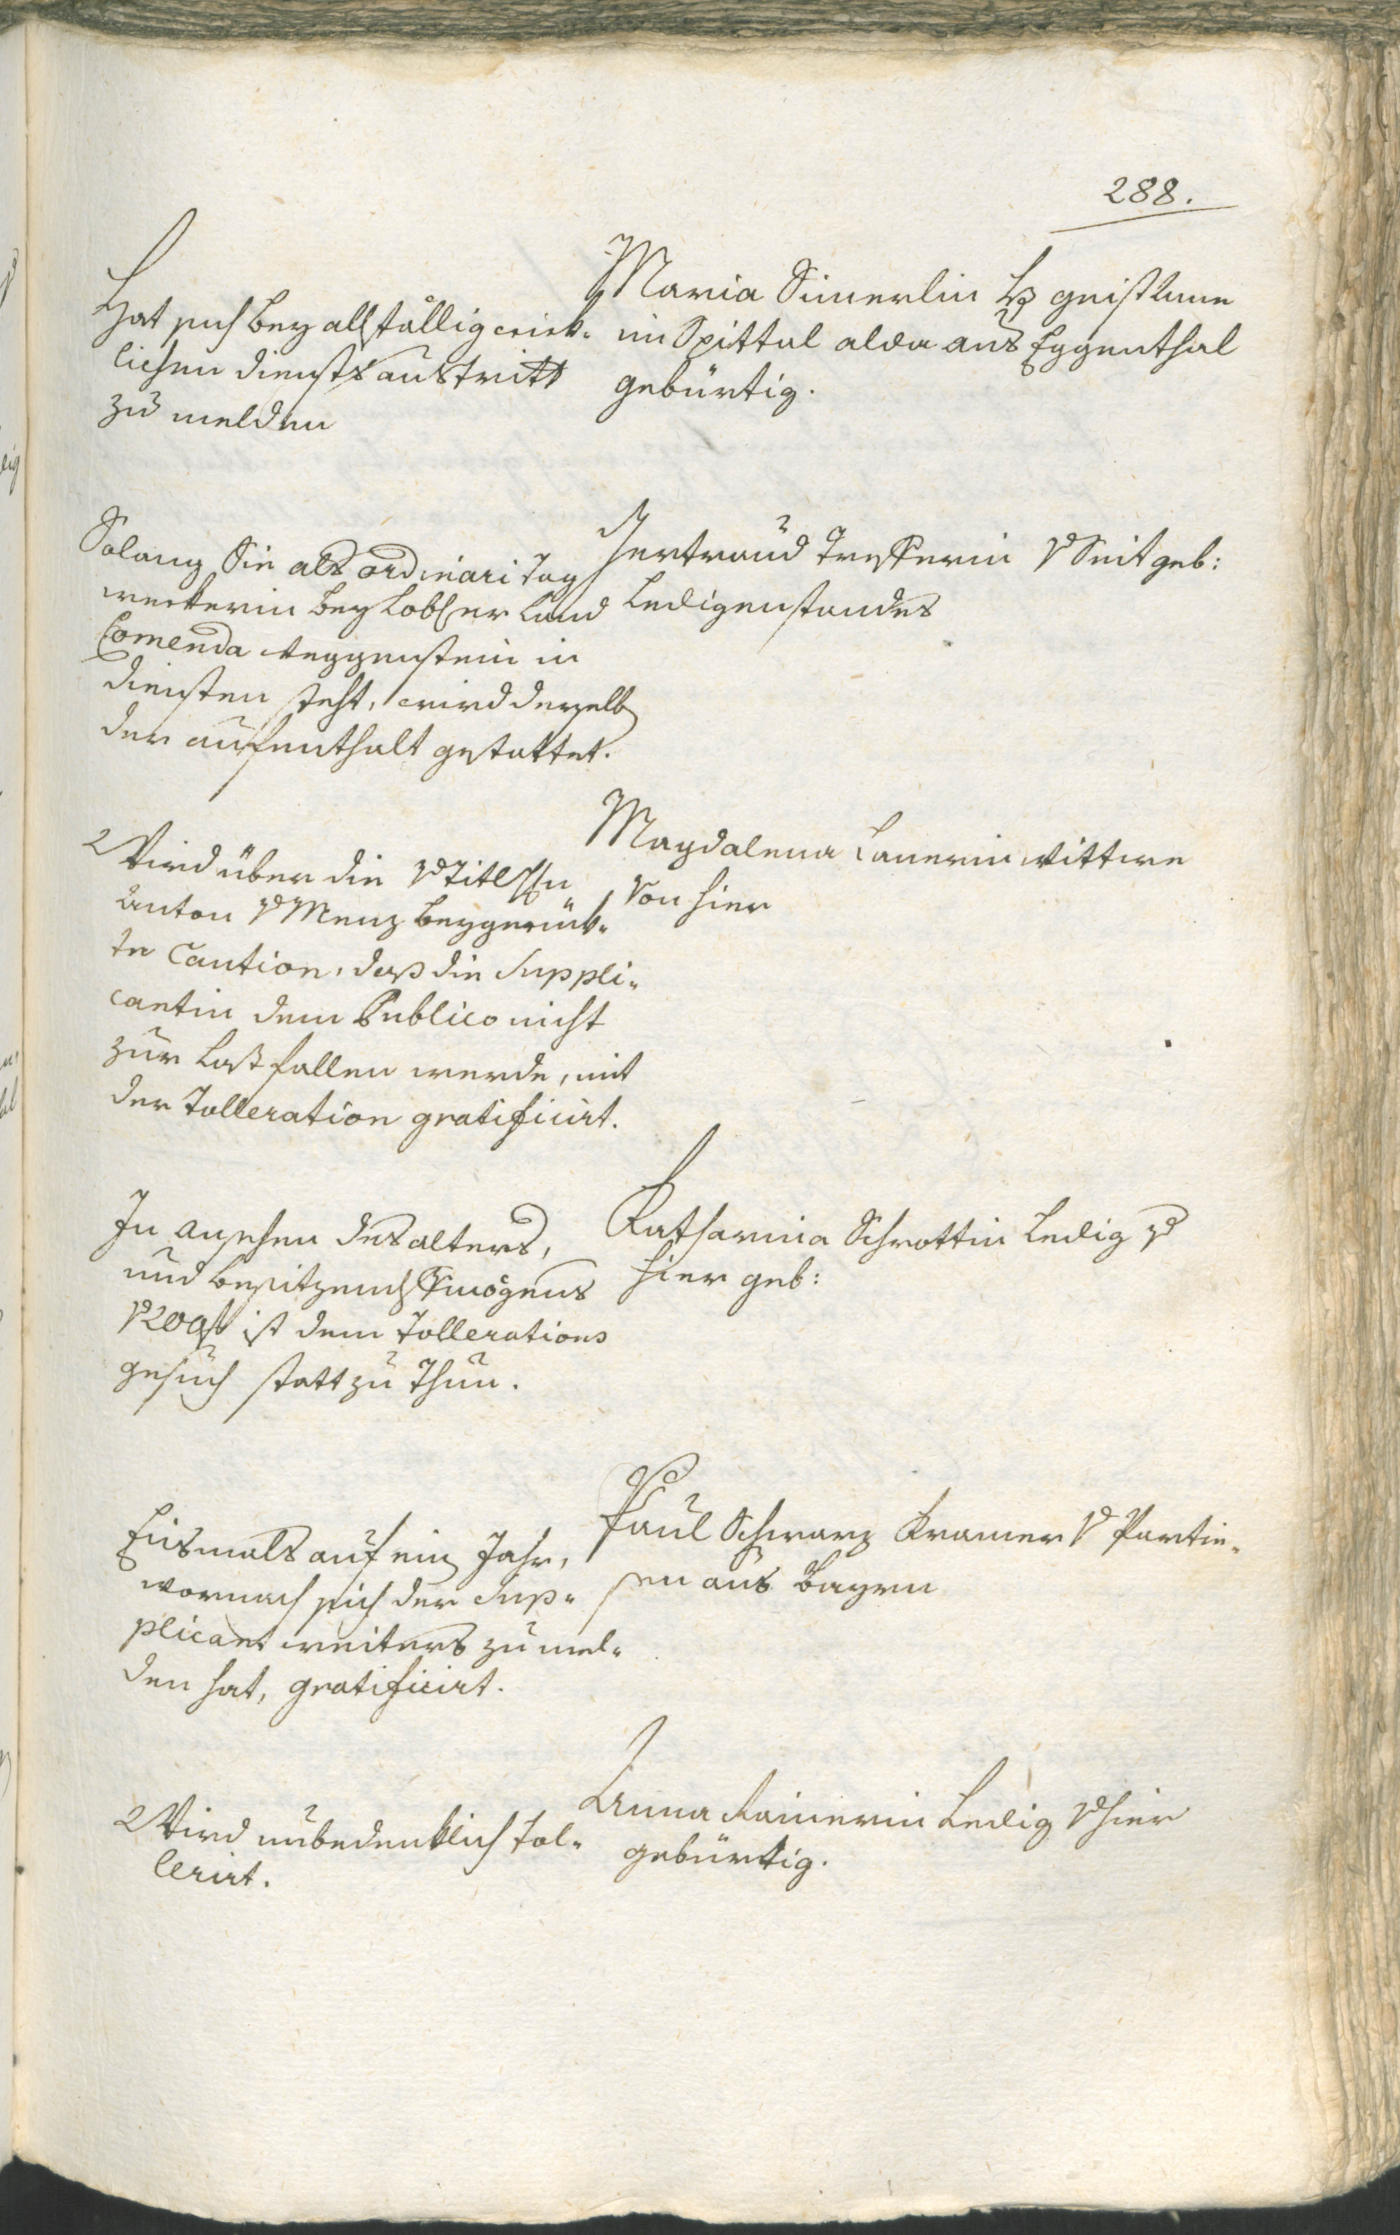 288.
Maria Simerlin
im Spittal alda aus Eggenthal
gebürtig.
Hat sich bey allfällig wirk-
lichen diensts austritt
zu melden
Gertraud Trefferin v Seit geb:
Ledigenstandes
Solang Sie als ordinari Tag
werkerin bey Lobl:er Land
Comenda Weggenstein in
diensten steht, wird derselb
der aufenthalt gestattet.
Magdalena Lanerin Wittwe
von hier
Wird über die v Titl H:
Anton v Menz beygeruk-
te Caution, daß die Suppli-
cantin dem Publico nicht
zur Last fallen werde, mit
der Tolleration gratificirt.
Katharina Schrottin Ledig v
hier geb:
In ansehen des alters,
und besitzend Vermögens
ist dem Tollerations
gesuch statt zu thun.
Paul Schwarz Kramer v Partie-
sen aus Bayrn
Eismals auf ein Jahr,
wornach sich der Sup-
plicant weiters zu mel-
den hat, gratificirt.
Anna Rainerin Ledig v hier
gebürtig.
Wird unbedenklich tol-
lerirt.